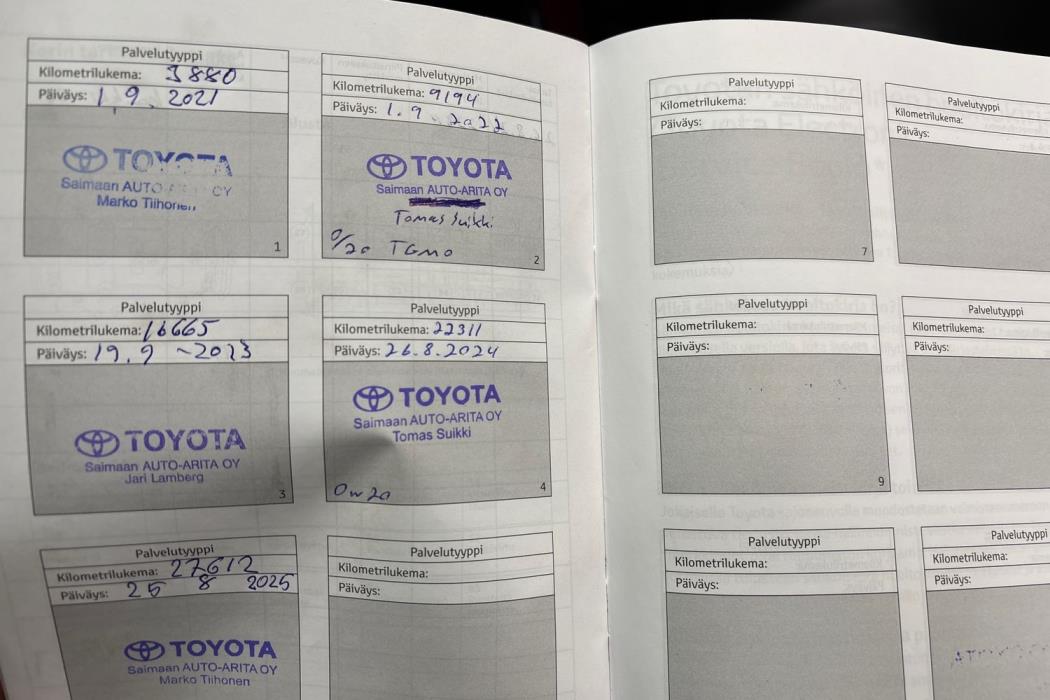 Palvelutyyppi
Kilometrilukema: 3880
Päiväys: 1 9. 2021
TOYOTA
Saimaan AUTO OY
Marko Tiihonen
1
Palvelutyyppi
Kilometrilukema: 9194
Päiväys: 1.9 2022
TOYOTA
Saimaan AUTO-ARITA OY
Tomas Suikki
0/20 TGMO
2
Palvelutyyppi
Kilometrilukema: 16665
Päiväys: 19.9 -2023
TOYOTA
Saimaan AUTO-ARITA OY
Jari Lamberg
3
Palvelutyyppi
Kilometrilukema: 22311
Päiväys: 26.8.2024
TOYOTA
Saimaan AUTO-ARITA OY
Tomas Suikki
0w20
4
Palvelutyyppi
Kilometrilukema: 27612
Päiväys: 25 8 2025
TOYOTA
Saimaan AUTO-ARITA OY
Marko Tiihonen
Palvelutyyppi
Kilometrilukema:
Päiväys:
Palvelutyyppi
Kilometrilukema:
Päiväys:
7
Palvelutyyppi
Kilometrilukema:
Päiväys:
Palvelutyyppi
Kilometrilukema:
Päiväys:
9
Palvelutyyppi
Kilometrilukema:
Päiväys:
Palvelutyyppi
Kilometrilukema:
Päiväys:
Palvelutyyppi
Kilometrilukema:
Päiväys: